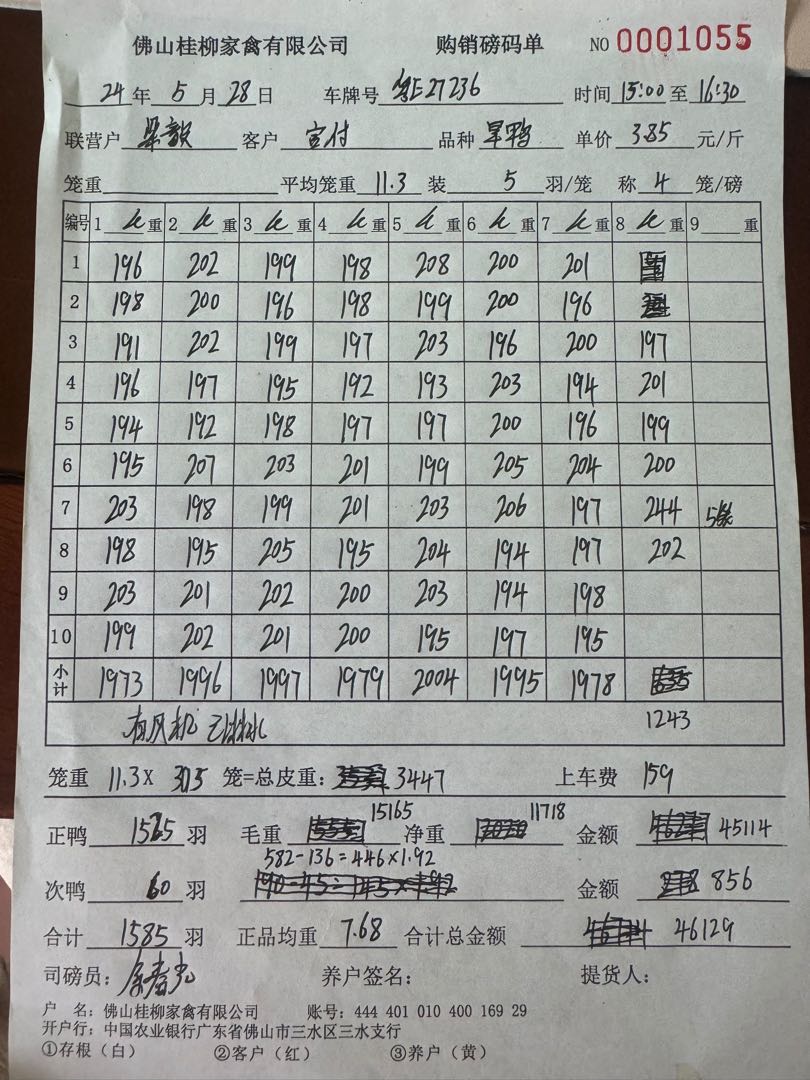 佛山桂柳家禽有限公司 购销磅码单 NO 0001055
24 年 5 月 28 日 车牌号 粤E27236 时间 15:00 至 16:30
联营户 梁毅 客户 宝付 品种 旱鸭 单价 3.85 元/斤
笼重 平均笼重 11.3 装 5 羽/笼 称 4 笼/磅
编号 1 重 2 重 3 重 4 重 5 重 6 重 7 重 8 重 9 重
1 196 202 199 198 208 200 201
2 198 200 196 198 199 200 196
3 191 202 199 197 203 196 200 197
4 196 197 195 192 193 203 194 201
5 194 192 198 197 197 200 196 199
6 195 207 203 201 199 205 204 200
7 203 198 199 201 203 206 197 244 5笼
8 198 195 205 195 204 194 197 202
9 203 201 202 200 203 194 198
10 199 202 201 200 195 197 195
小计 1973 1996 1997 1979 2004 1995 1978
有风机 已淋水 1243
笼重 11.3 X 305 笼=总皮重: 3447 上车费 159
正鸭 1525 羽 毛重 15165 净重 11718 金额 45114
582-136=446×1.92
次鸭 60 羽 金额 856
合计 1585 羽 正品均重 7.68 合计总金额 46129
司磅员: 养户签名: 提货人:
户 名: 佛山桂柳家禽有限公司 账号: 444 401 010 400 169 29
开户行: 中国农业银行广东省佛山市三水区三水支行
①存根(白) ②客户(红) ③养户(黄)